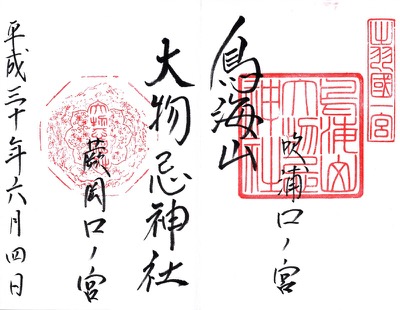 出羽國一宮
鳥海山
吹浦口ノ宮
大物忌神社
蕨岡口ノ宮
平成三十年六月四日